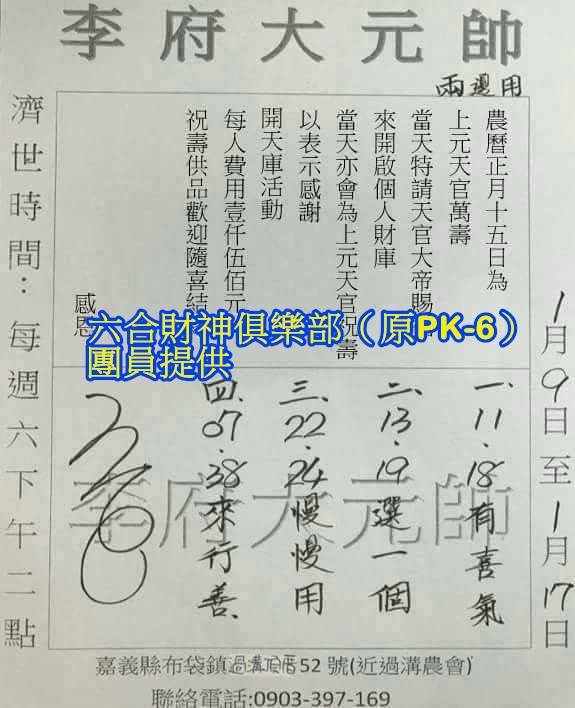 李府大元帥
兩邊用
農曆正月十五日為
上元天官萬壽
當天特請天官大帝賜
來開啟個人財庫
當天亦會為上元天官祝壽
以表示感謝
開天庫活動
每人費用壹仟伍佰元
祝壽供品歡迎隨喜結
感恩
六合財神俱樂部（原PK-6）
團員提供
1月9日至1月17日
一、11·18有喜氣
二、13·19選一個
三、22·24慢慢用
四、07·38來行善
李府大元帥
濟世時間：每週六下午二點
嘉義縣布袋鎮過溝厝52號(近過溝農會)
聯絡電話:0903-397-169